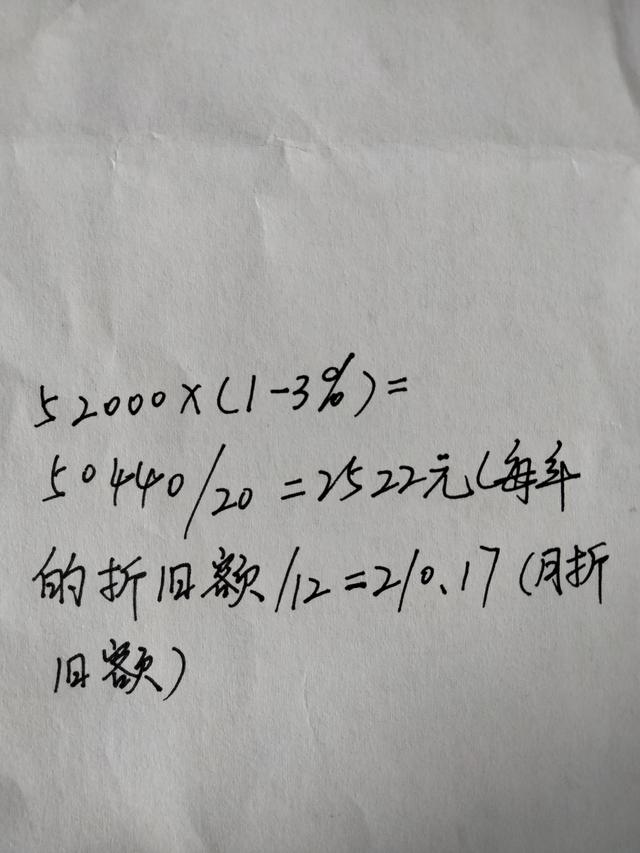 52000×(1-3%)=
50440/20=2522元(每年
的折旧额/12=210.17(月折
旧额)